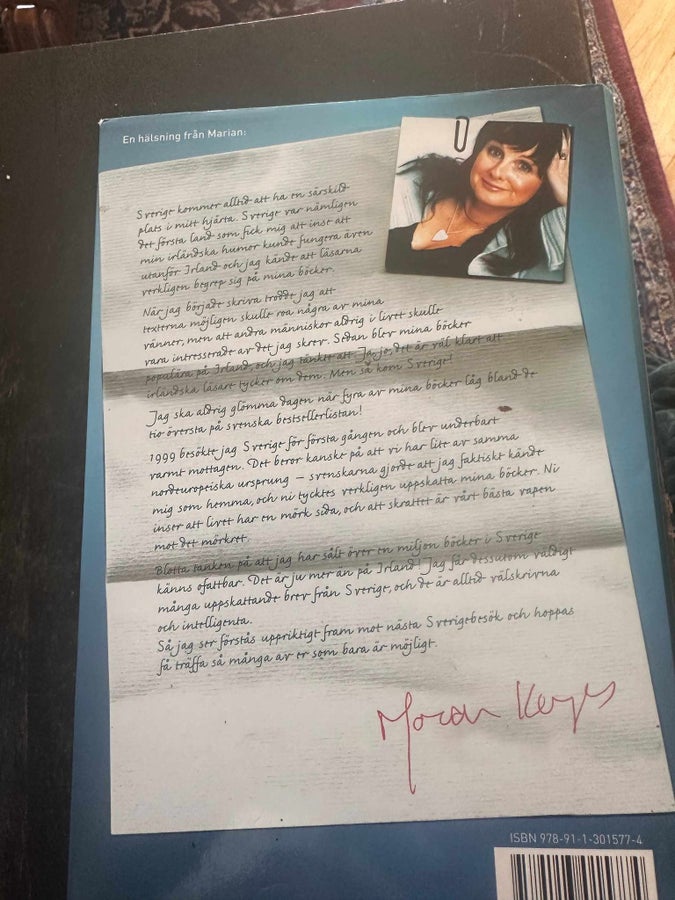 En hälsning från Marian:
Sverige kommer alltid att ha en särskild
plats i mitt hjärta. Sverige var nämligen
det första land som fick mig att inse att
min irländska humor kunde fungera även
utanför Irland och jag kände att läsarna
verkligen begrep sig på mina böcker.
När jag började skriva trodde jag att
texterna möjligen skulle roa några av mina
vänner, men att andra människor aldrig i livet skulle
vara intresserade av det jag skrev. Sedan blev mina böcker
populära på Irland, och jag tänkte att Ja ja, det är väl klart att
irländska läsare tycker om dem. Men så kom Sverige!
Jag ska aldrig glömma dagen när fyra av mina böcker låg bland de
tio översta på svenska bestsellerlistan!
1999 besökte jag Sverige för första gången och blev underbart
varmt mottagen. Det beror kanske på att vi har lite av samma
nordeuropeiska ursprung – svenskarna gjorde att jag faktiskt kände
mig som hemma, och ni tycktes verkligen uppskatta mina böcker. Ni
inser att livet har en mörk sida, och att skrattet är vårt bästa vapen
mot det mörkret.
Blotta tanken på att jag har sålt över en miljon böcker i Sverige
känns ofattbar. Det är ju mer än på Irland! Jag får dessutom väldigt
många uppskattande brev från Sverige, och de är alltid välskrivna
och intelligenta.
Så jag ser förstås uppriktigt fram mot nästa Sverigebesök och hoppas
få träffa så många av er som bara är möjligt.
Marian Keyes
ISBN 978-91-1-301577-4